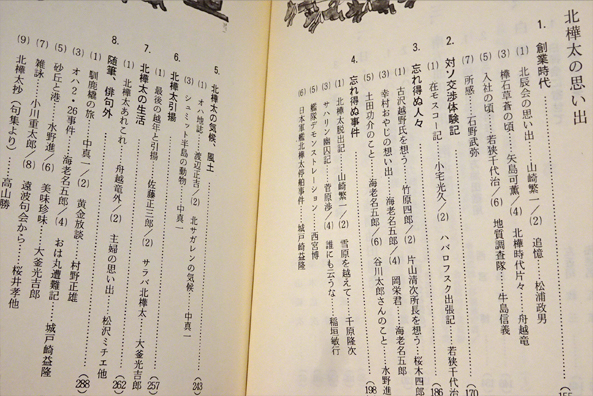 北樺太の思い出
1. 創業時代
(1) 北辰会の思い出……山崎繁一/(2) 追憶……松浦政男
(3) 樺石草蒼の頃……矢島可薫/(4) 北樺時代片々……舟越竜
(5) 入社の頃……若狭千代治/(6) 地質調査隊……牛島信義
(7) 所感……石野武弥
170
2. 対ソ交渉体験記
(1) 在モスコー記……小宅光久/(2) ハバロフスク出張記……若狭千代治
186
3. 忘れ得ぬ人々
(1) 古沢越野氏を想う……竹原四郎/(2) 片山清次所長を想う……桜木四郎
(3) 幸村おやじの思い出……海老名五郎/(4) 岡栄君……海老名五郎
(5) 土田功介のこと……海老名五郎/(6) 谷川太郎さんのこと……水野進
198
4. 忘れ得ぬ事件
(1) 北樺太脱出記……山崎繁一/(2) 雪原を越えて……千原隆次
(3) サハリン幽囚記……菅原渉/(4) 誰にも云うな……稲垣敏行
(5) 艦隊デモンストレーション……西宮博
(6) 日本軍艦北樺太停船事件……城戸崎益隆
5. 北樺太の気候、風土
(1) オハ地誌……渡辺正吉/(2) 北サガレンの気候……中真一
(3) シュミット半島の動物……中真一
(243)
6. 北樺太引揚
(1) 最後の越年と引揚……佐藤正三郎/(2) サラバ北樺太……大釜光吉郎
(257)
7. 北樺太の生活
(1) 北樺太あれこれ……舟越竜外/(2) 主婦の思い出……松沢ミチエ他
(262)
8. 随筆、俳句外
(1) 馴鹿橇の旅……中真一/(2) 黄金放談……村野正雄
(288)
(3) オハ2・26事件……海老名五郎/(4) おは丸遭難記……城戸崎益隆
(5) 砂丘と港……水野進/(6) 美味珍味……大釜光吉郎
(7) 雑詠……小川重太郎/(8) 遠波句会から……桜井孝他
(9) 北樺太抄(句集より)……高山勝